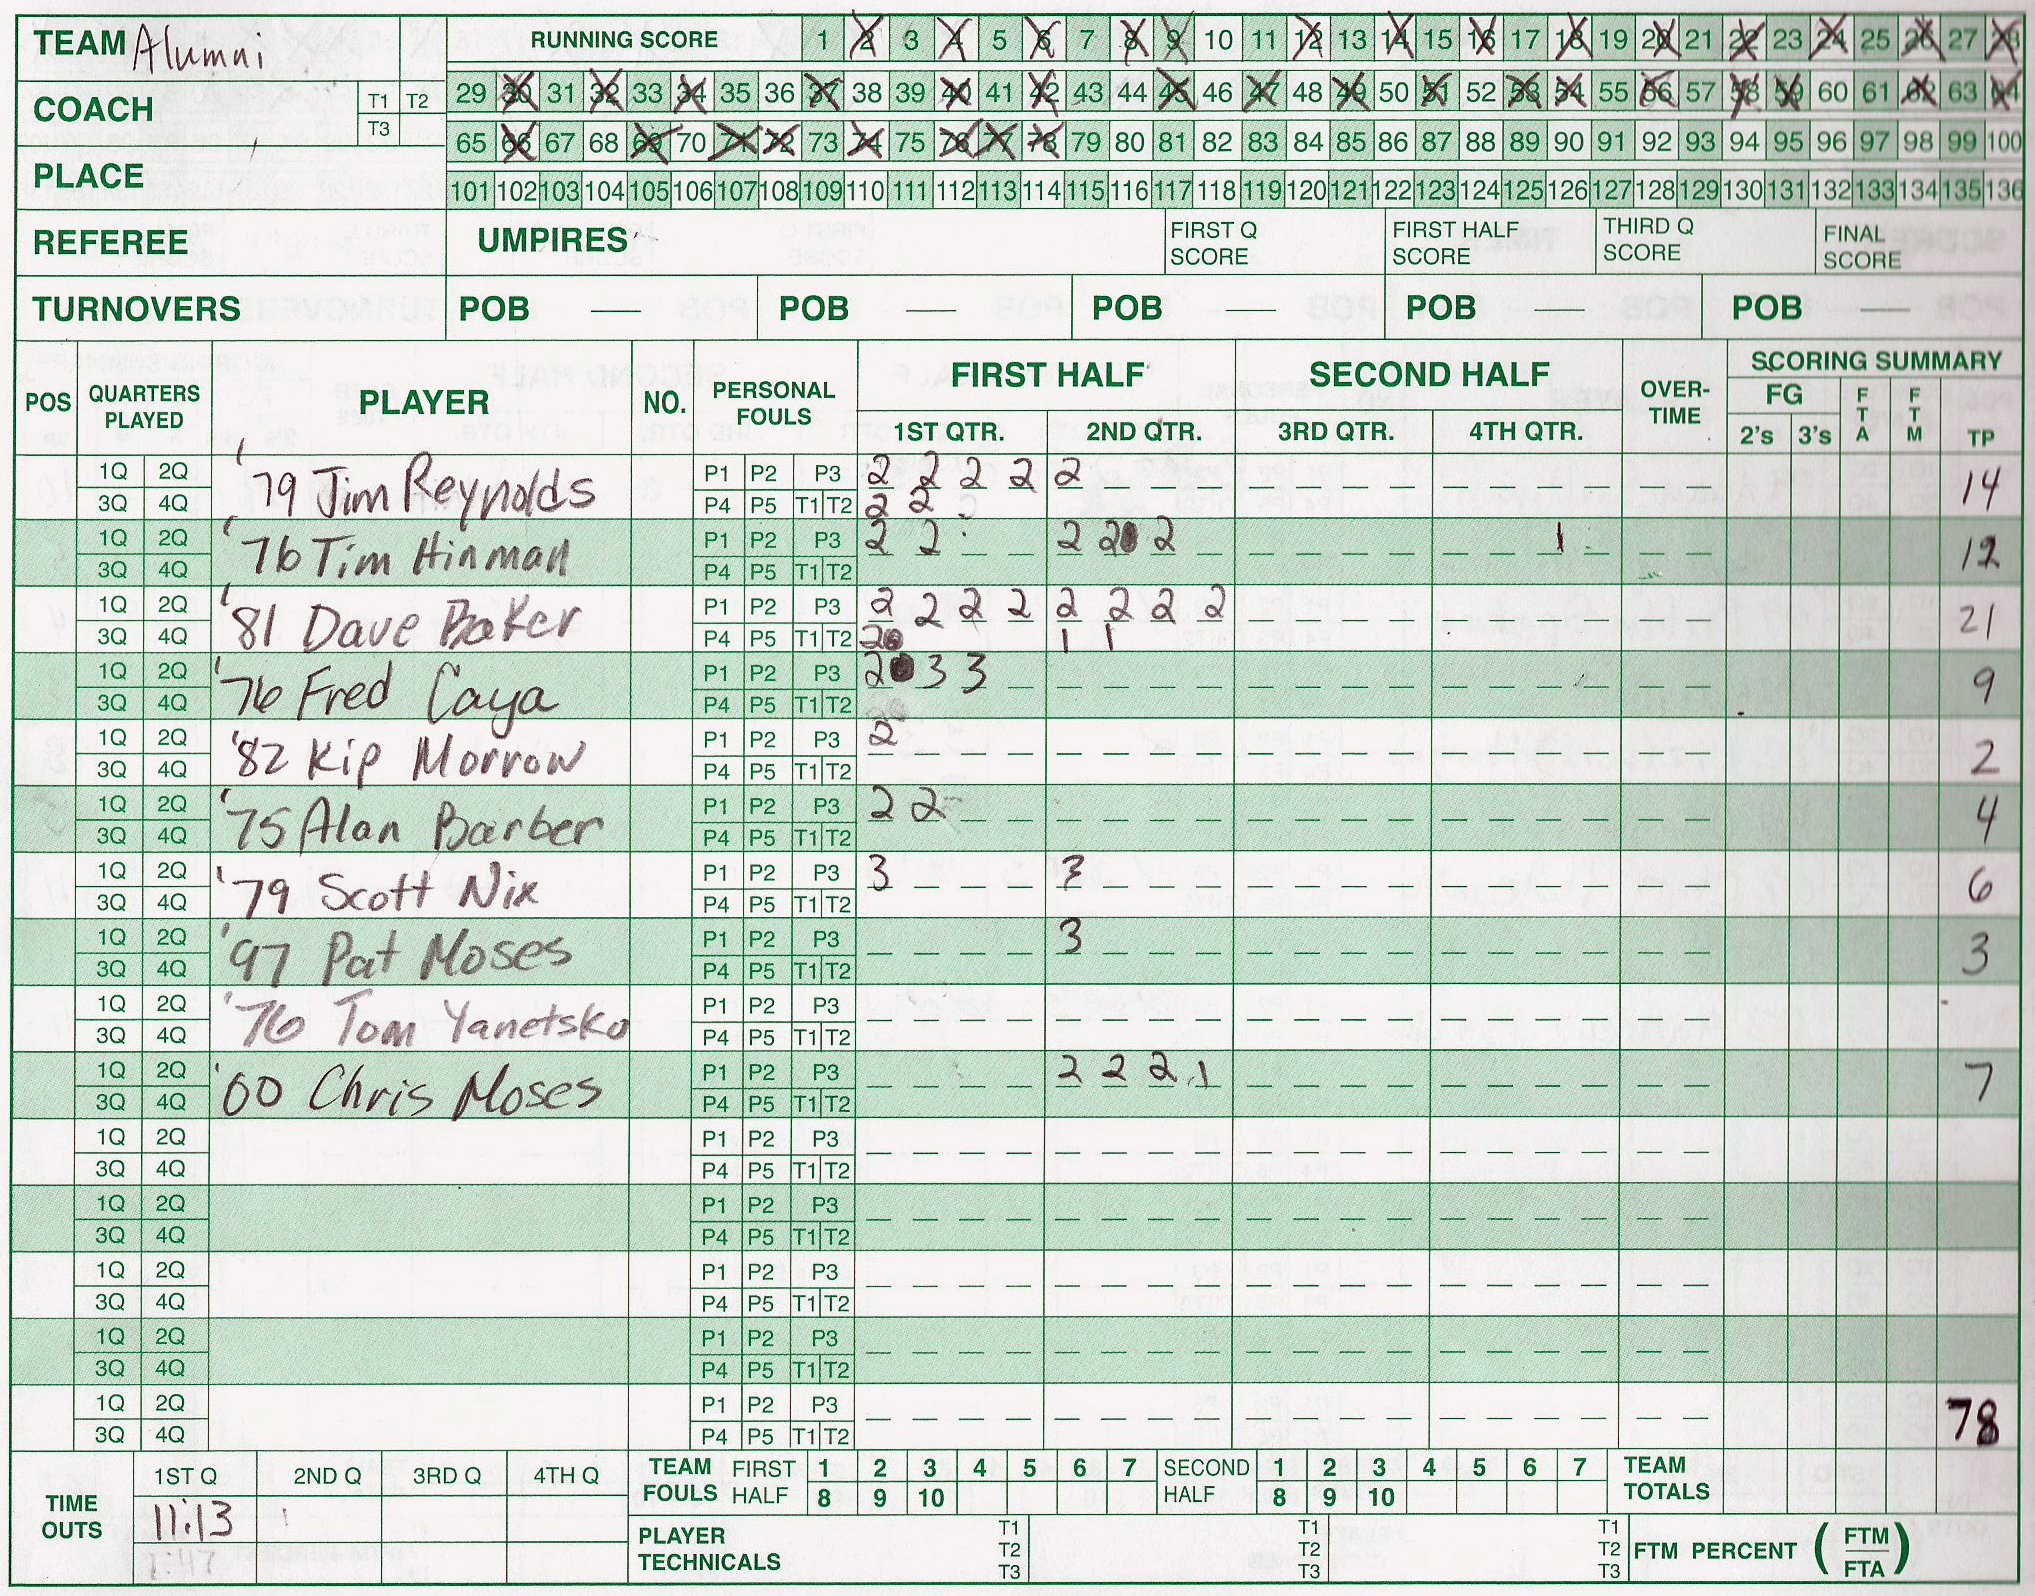 TEAM Alumni RUNNING SCORE 1 2 3 4 5 6 7 8 9 10 11 12 13 14 15 16 17 18 19 20 21 22 23 24 25 26 27 28
COACH T1 T2 T3 29 30 31 32 33 34 35 36 37 38 39 40 41 42 43 44 45 46 47 48 49 50 51 52 53 54 55 56 57 58 59 60 61 62 63 64
65 66 67 68 69 70 71 72 73 74 75 76 77 78 79 80 81 82 83 84 85 86 87 88 89 90 91 92 93 94 95 96 97 98 99 100
PLACE 101 102 103 104 105 106 107 108 109 110 111 112 113 114 115 116 117 118 119 120 121 122 123 124 125 126 127 128 129 130 131 132 133 134 135 136
REFEREE UMPIRES FIRST Q SCORE FIRST HALF SCORE THIRD Q SCORE FINAL SCORE
TURNOVERS POB — POB — POB — POB — POB —
POS QUARTERS PLAYED PLAYER NO. PERSONAL FOULS FIRST HALF SECOND HALF OVER-TIME SCORING SUMMARY
1ST QTR. 2ND QTR. 3RD QTR. 4TH QTR. FG 2's 3's FTA FTM TP
1Q 2Q '79 Jim Reynolds P1 P2 P3 2 2 2 2 2 14
3Q 4Q P4 P5 T1 T2 2 2
1Q 2Q '76 Tim Hinman P1 P2 P3 2 2 2 2 2 1 12
3Q 4Q P4 P5 T1 T2
1Q 2Q '81 Dave Baker P1 P2 P3 2 2 2 2 2 2 2 2 21
3Q 4Q P4 P5 T1 T2 2 1 1
1Q 2Q '76 Fred Caya P1 P2 P3 2 3 3 9
3Q 4Q P4 P5 T1 T2
1Q 2Q '82 Kip Morrow P1 P2 P3 2 2
3Q 4Q P4 P5 T1 T2
1Q 2Q '75 Alan Barber P1 P2 P3 2 2 4
3Q 4Q P4 P5 T1 T2
1Q 2Q '79 Scott Nix P1 P2 P3 3 3 6
3Q 4Q P4 P5 T1 T2
1Q 2Q '97 Pat Moses P1 P2 P3 3 3
3Q 4Q P4 P5 T1 T2
1Q 2Q '76 Tom Yanetsko P1 P2 P3
3Q 4Q P4 P5 T1 T2
1Q 2Q '00 Chris Moses P1 P2 P3 2 2 2 1 7
3Q 4Q P4 P5 T1 T2
1Q 2Q P1 P2 P3
3Q 4Q P4 P5 T1 T2
1Q 2Q P1 P2 P3
3Q 4Q P4 P5 T1 T2
1Q 2Q P1 P2 P3
3Q 4Q P4 P5 T1 T2
1Q 2Q P1 P2 P3
3Q 4Q P4 P5 T1 T2
1Q 2Q P1 P2 P3 78
3Q 4Q P4 P5 T1 T2
TIME OUTS 1ST Q 2ND Q 3RD Q 4TH Q TEAM FOULS FIRST HALF 1 2 3 4 5 6 7 SECOND HALF 1 2 3 4 5 6 7 TEAM TOTALS
8 9 10 8 9 10
11:13 PLAYER TECHNICALS T1 T2 T3 T1 T2 T3 T1 T2 T3 FTM PERCENT (FTM/FTA)
1:47